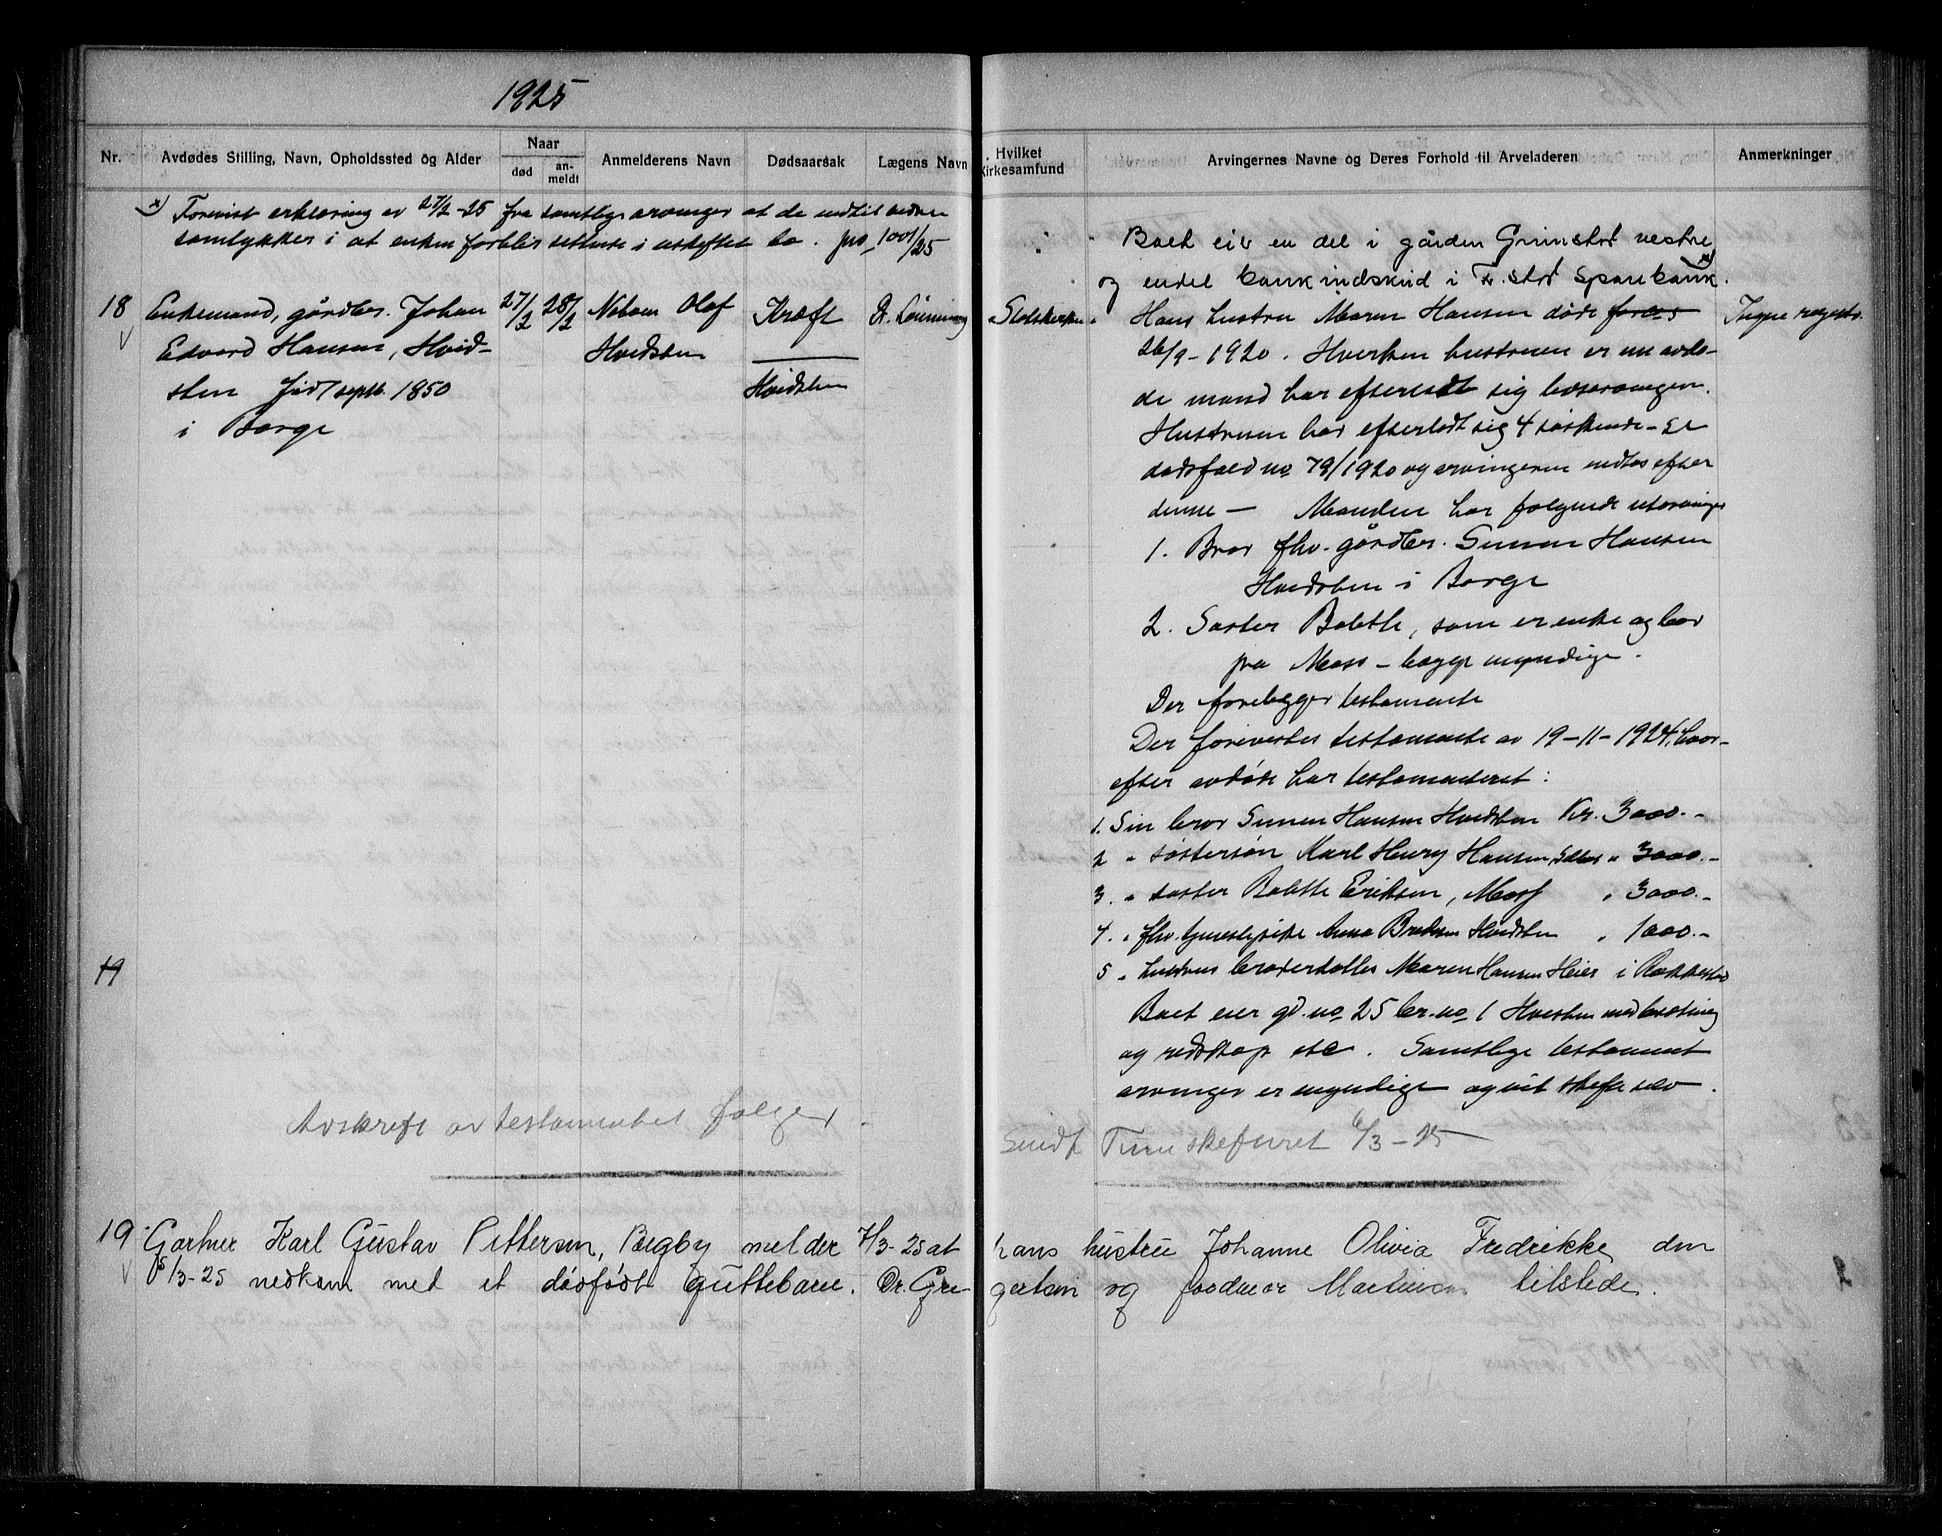 1925
Nr.
Avdødes Stilling, Navn, Opholdssted og Alder
Naar
død
an-
meldt
Anmelderens Navn
Dødsaarsak
Lægens Navn
Hvilket
Kirkesamfund
Arvingernes Navne og Deres Forhold til Arveladeren
Anmerkninger
x) Forevist erklæring av 27/2-25 fra samtlige arvinger at de indtil videre
samtykker i at enken forblir sittende i uskiftet bo. jno 1001/25
Boet eier en del i gården Grimstad vestre
og endel bankindskud i Fr.stad Sparebank x)
18
Enkemand, gårdbr. Johan
Edvard Hansen, Hvid-
sten født septb. 1850
i Borge
27/2
28/2
Naboen Olaf
Hvidsten
Kræft
Hvidsten
Dr. Lönning
Statskirken
Hans hustru Maren Hansen døde
26/9-1920. Hverken hustruen er nu avdø-
de mand har efterladt sig livsarvinger.
Hustruen har efterladt sig 4 søskende - se
dødsfald no 79/1920 og arvingerne indtas efter
denne — Manden har følgende utarvinger
1. Bror fhv. gårdbr. Simen Hansen
Hvidsten i Borge
2. Søster Bolette, som er enke og bor
på Moss - begge myndige.
Der foreligger testamente
Der forevistes testamente av 19-11-1924, hvor-
efter avdøde har testamenteret:
1. Sin bror Simen Hansen Hvidsten Kr. 3000.-
2 " søstersøn Karl Henry Hansen, " 3000.-
3. " søster Bolette Eriksen, Moss " 3000.-
4. " fhv. tjenestepike Anna Hvidsten " 1000.-
5 " hustrus broderdatter Maren Hansen Heier i Rakkestad
Boet eier gd. no 25 br. no 1 Hvidsten med besætning
og redskap etc. Samtlige testament
arvinger er myndige og vil skifte selv.
Ingen
19
Avskrift av testamentet følger
Sendt Tune skifteret 6/3-25
19
Gartner Karl Gustav Pettersen, Begby melder 7/3-25 at hans hustru Johanne Olivia Fredrikke den
5/3-25 nedkom med et dødfødt guttebarn. Dr. Gregertsen og jordmor Martinsen tilstede.